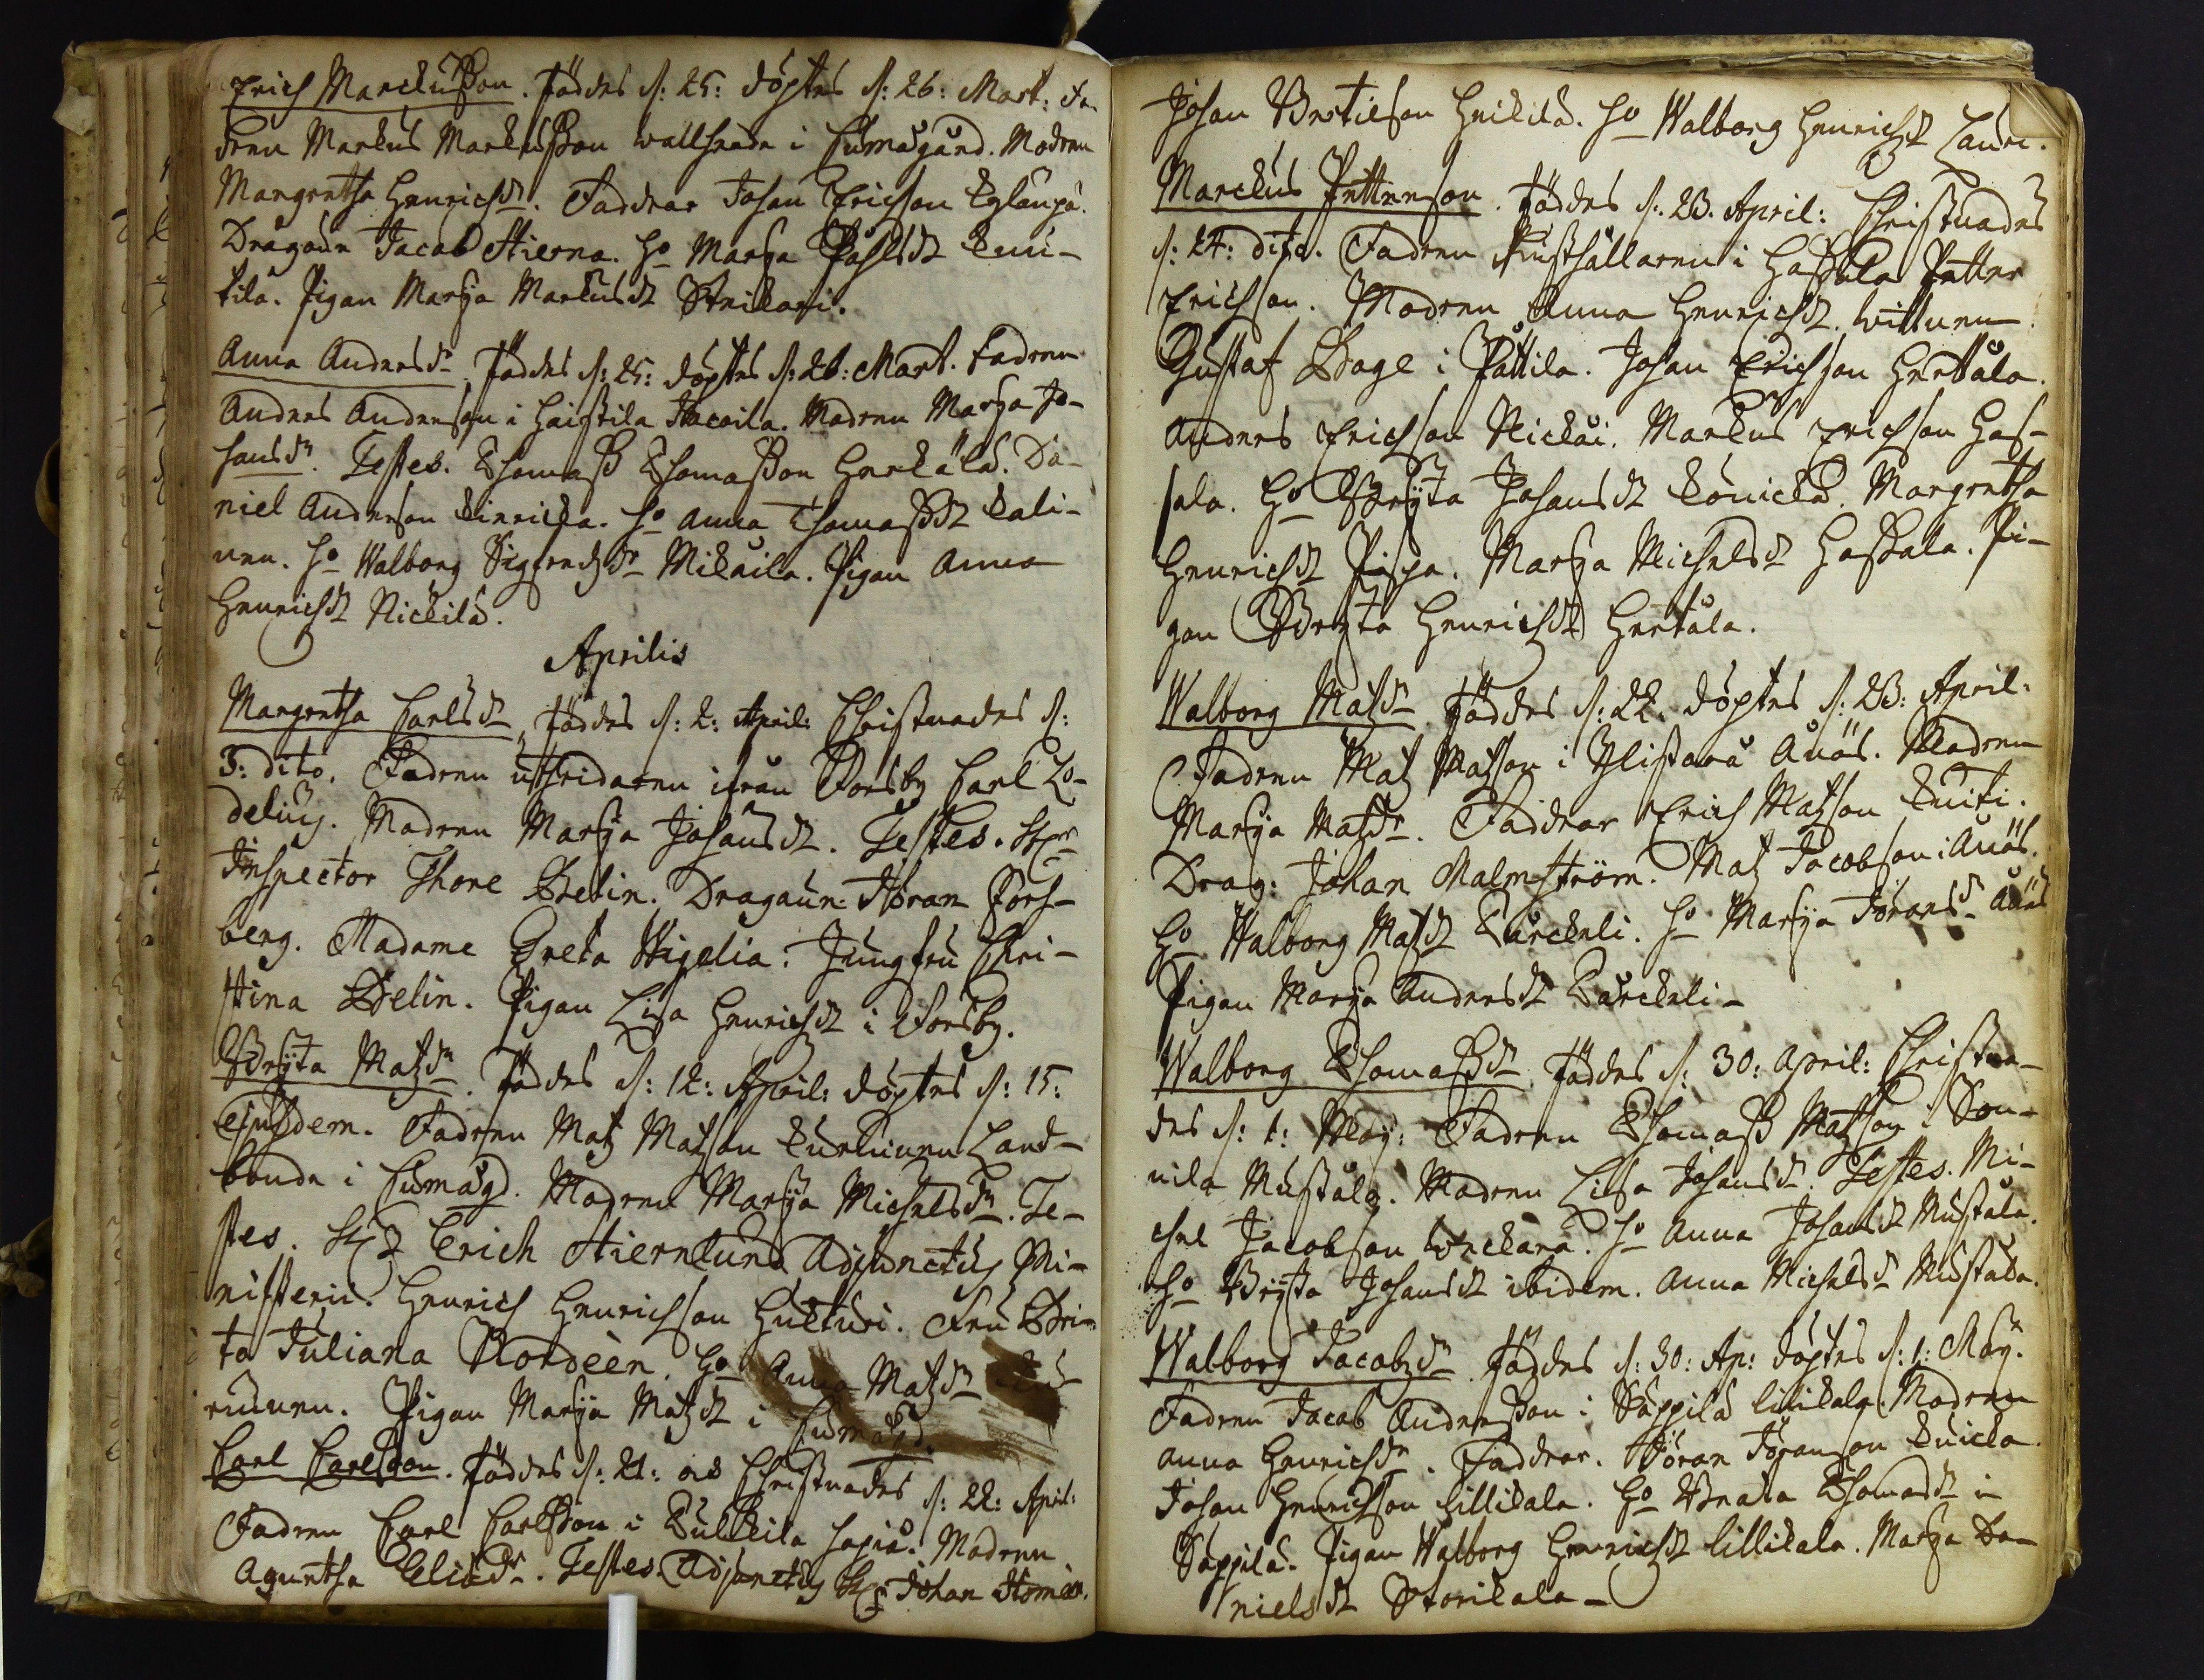 Erich Marckusson. Föddes d: 25: döptes d: 26: Mart: Fa-
dren Markus Markusson wallherde i Cumågård. Modren
Margretha Henrichsdr. Faddrar Johan Ericson
Dragoun Jacob Stierna. ho Marja Påhlsdr
tila. Pigan Marja Markusdr
Anna Andersdr. Föddes d: 25: döptes d: 26: Mart. Fadren
Anders Anderson i Haistila. Modren Marja Jo-
hansdr. Testes. Thomass Thomasson Da-
niel Anderson ho Anna Thomassdr Kali-
nen. ho Walborg Sigfredzdr Mikaila. Pigan Anna
Henrichsdr Nickilä.
Aprilis
Margretha Carlsdr. Föddes d: 2: April: Christnades d:
3: dito. Fadren uthridaren ifrån Forsby Carl Lo-
delius. Modren Marja Johansdr. Testes. Hr
Inspector Thore Belin. Dragoun Jöran Fors-
berg. Madame Greta Wigelia. Jungfru Chri-
stina Belin. Pigan Lisa Henrichsdr i Forsby.
Bryta Matzdr. Föddes d: 12: April: döptes d: 15:
ejusdem. Fadren Matz Matzson Land-
bonde i Cumågd. Modren Marja Michelsdr. Te-
stes. Hr Erich Stiernlund Adjunctus Mi-
nisterii. Henrich Henrichson Hulturi. Fru Bri-
ta Juliana Nordeen. Ho Anna Matzdr
Pigan Marja Matzdr i Cumågd.
Carl Carlsson. Föddes d: 21: och Christnades d: 22: April:
Fadren Carl Carlsson i Pulkkila Modren
Agnetha Eliædr. Testes. Adjunctus Hr Johan
Johan Bertilson Heikilä. ho Walborg Henrichsdr Lauri.
Marckus Petterson. Föddes d: 23. April: Christnades
d: 24: dito. Fadren Rusthållaren i Hassala Petter
Erichson. Modren Anna Henrichsdr. wittnen
Gustaf Boge i Pattila. Johan Erichson Herttola.
Anders Erichson Nickai. Markus Erichson Has-
sala. Ho Bryta Johansdr Margretha
Henrichsdr Pispa. Marja Michelsdr Hassala. Pi-
gan Bryta Henrichsdr Herttola.
Walborg Matzdr. Föddes d: 22. döptes d: 23: April:
Fadren Matz Matzson i Ylistarå Anäs. Modren
Marja Matzdr. Faddrar Erich Matzson Knifi.
Drag: Johan Malmström. Matz Jacobson i Anäs.
Ho Walborg Matzdr ho Marja Jöransdr Anäs
Pigan Marja Andersdr
Walborg Thomassdr. Föddes d: 30: April: Christna-
des d: 1: Maij. Fadren Thomass Matzson i Son-
nila Mustala. Modren Lisa Johansdr. Testes. Mi-
chel Jacobson ho Anna Johansdr Mustala.
Ho Bryta Johansdr ibidem. Anna Michelsdr Mustala.
Walborg Jacobzdr. Föddes d: 30: Ap: döptes d: 1: Maij.
Fadren Jacob Anderson i Säppilä Lillikala. Modren
Anna Henrichsdr. Faddrar. Jöran Jöranson
Johan Henrichson Lillikala. Ho Beata Thomasdr i
Säppilä. Pigan Walborg Henrichsdr Lillikala. Marja Da-
nielsdr Storikala